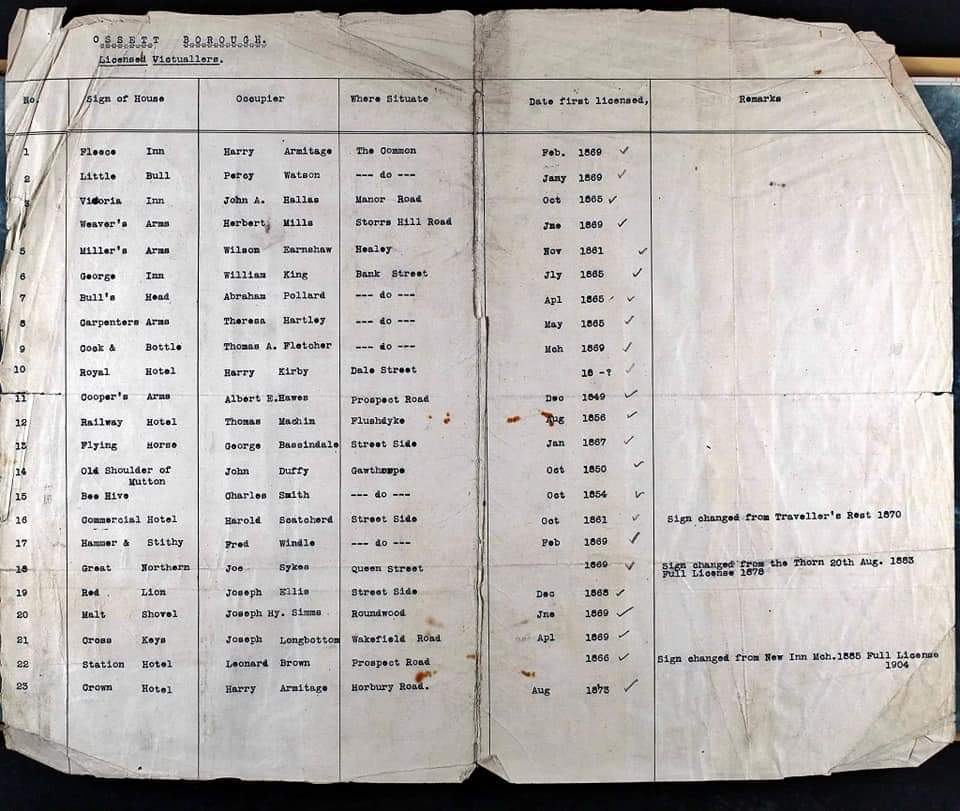 OSSETT BOROUGH.
Licensed Victuallers.
No. Sign of House Occupier Where Situate Date first licensed, Remarks
1 Fleece Inn Harry Armitage The Common Feb. 1869 ✓
2 Little Bull Percy Watson --- do --- Jany 1869 ✓
3 Victoria Inn John A. Hallas Manor Road Oct 1865 ✓
Weaver's Arms Herbert Mills Storrs Hill Road Jne 1869 ✓
5 Miller's Arms Wilson Earnshaw Healey Nov 1861 ✓
6 George Inn William King Bank Street Jly 1865 ✓
7 Bull's Head Abraham Pollard --- do --- Apl 1865 ✓
8 Carpenters Arms Theresa Hartley --- do --- May 1865 ✓
9 Cock & Bottle Thomas A. Fletcher --- do --- Mch 1869 ✓
10 Royal Hotel Harry Kirby Dale Street 18 -? ✓
11 Cooper's Arms Albert E.Hawes Prospect Road Dec 1849 ✓
12 Railway Hotel Thomas Machin Flushdyke Aug 1856 ✓
13 Flying Horse George Bassindale Street Side Jan 1867 ✓
14 Old Shoulder of John Duffy Gawthorpe Oct 1850 ✓
Mutton
15 Bee Hive Charles Smith --- do --- Oct 1854 ✓
16 Commercial Hotel Harold Scatcherd Street Side Oct 1861 ✓ Sign changed from Traveller's Rest 1870
17 Hammer & Stithy Fred Windle --- do --- Feb 1869 ✓
18 Great Northern Joe Sykes Queen Street 1869 ✓ Sign changed from the Thorn 20th Aug. 1883
Full License 1878
19 Red Lion Joseph Ellis Street Side Dec 1868 ✓
20 Malt Shovel Joseph Hy. Simms Roundwood Jne 1869 ✓
21 Cross Keys Joseph Longbottom Wakefield Road Apl 1869 ✓
22 Station Hotel Leonard Brown Prospect Road 1866 ✓ Sign changed from New Inn Mch.1885 Full License
1904
23 Crown Hotel Harry Armitage Horbury Road. Aug 1873 ✓